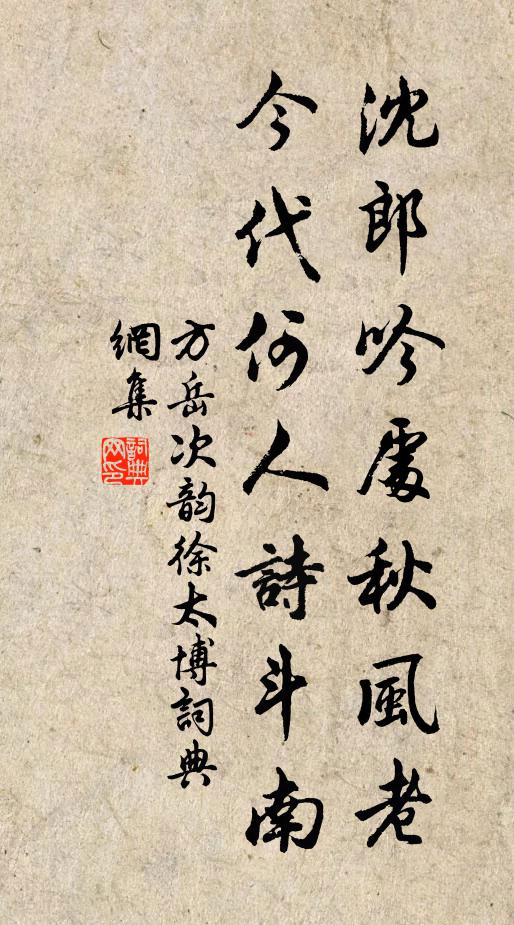 沈郎吟處秋風老
今代何人詩斗南
方岳次韵徐太博詞典
網集
詞典網印